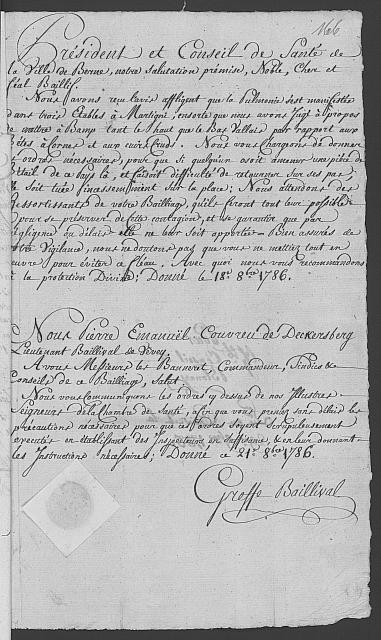 Président et Conseil de Santé de
la Ville de Berne, notre salutation prémise, Noble, Cher et
féal Baillif.
Nous avons reçu l'avis affligent que la Pulmonie s'est manifestée
dans trois Etables à Martigni, ensorte que nous avons jugé à propos
de mettre à Bamp tant le haut que le Bas Vallais par rapport aux
Bêtes à Cornes et aux cuirs Cruds. Nous vous Chargeons de donner
les ordres nécessaires, pour que si quelqu'un osoit amener une pièce de
Bétail de ce pays là, et faisoit difficulté de retourner sur ses pas,
soit tuée sur la place; Nous attendons des
Ressortissants de votre Bailliage, qu'ils feront tout leur possible
pour se préserver de cette contagion, et se garantir que par
négligence ou délais elle ne leur soit apportée. Bien assurés de
votre Vigilance, nous ne doutons pas que vous ne mettiez tout en
œuvre pour éviter ce fléau. Avec quoi nous vous recommandons
à la protection Divine; Donné le 18e. 8bre. 1786.
Nous Pierre Emanuël Couvreu de Deckersberg
Lieutenant Baillival de Vevey
A vous Messieurs les Banneret, Commandeur, Sindics &
Conseils de ce Bailliage, salut.
Nous vous communiquons les ordres cy dessus de nos Illustres
Seigneurs de la Chambre de Santé, afin que vous preniez sans délai les
précautions nécessaires pour que ces ordres soyent scrupuleusement
executés en établissant des Inspecteurs en suffisance, & en leur donnant
les Instructions nécessaires; Donné ce 21e. 8bre. 1786.
Greffe Baillival